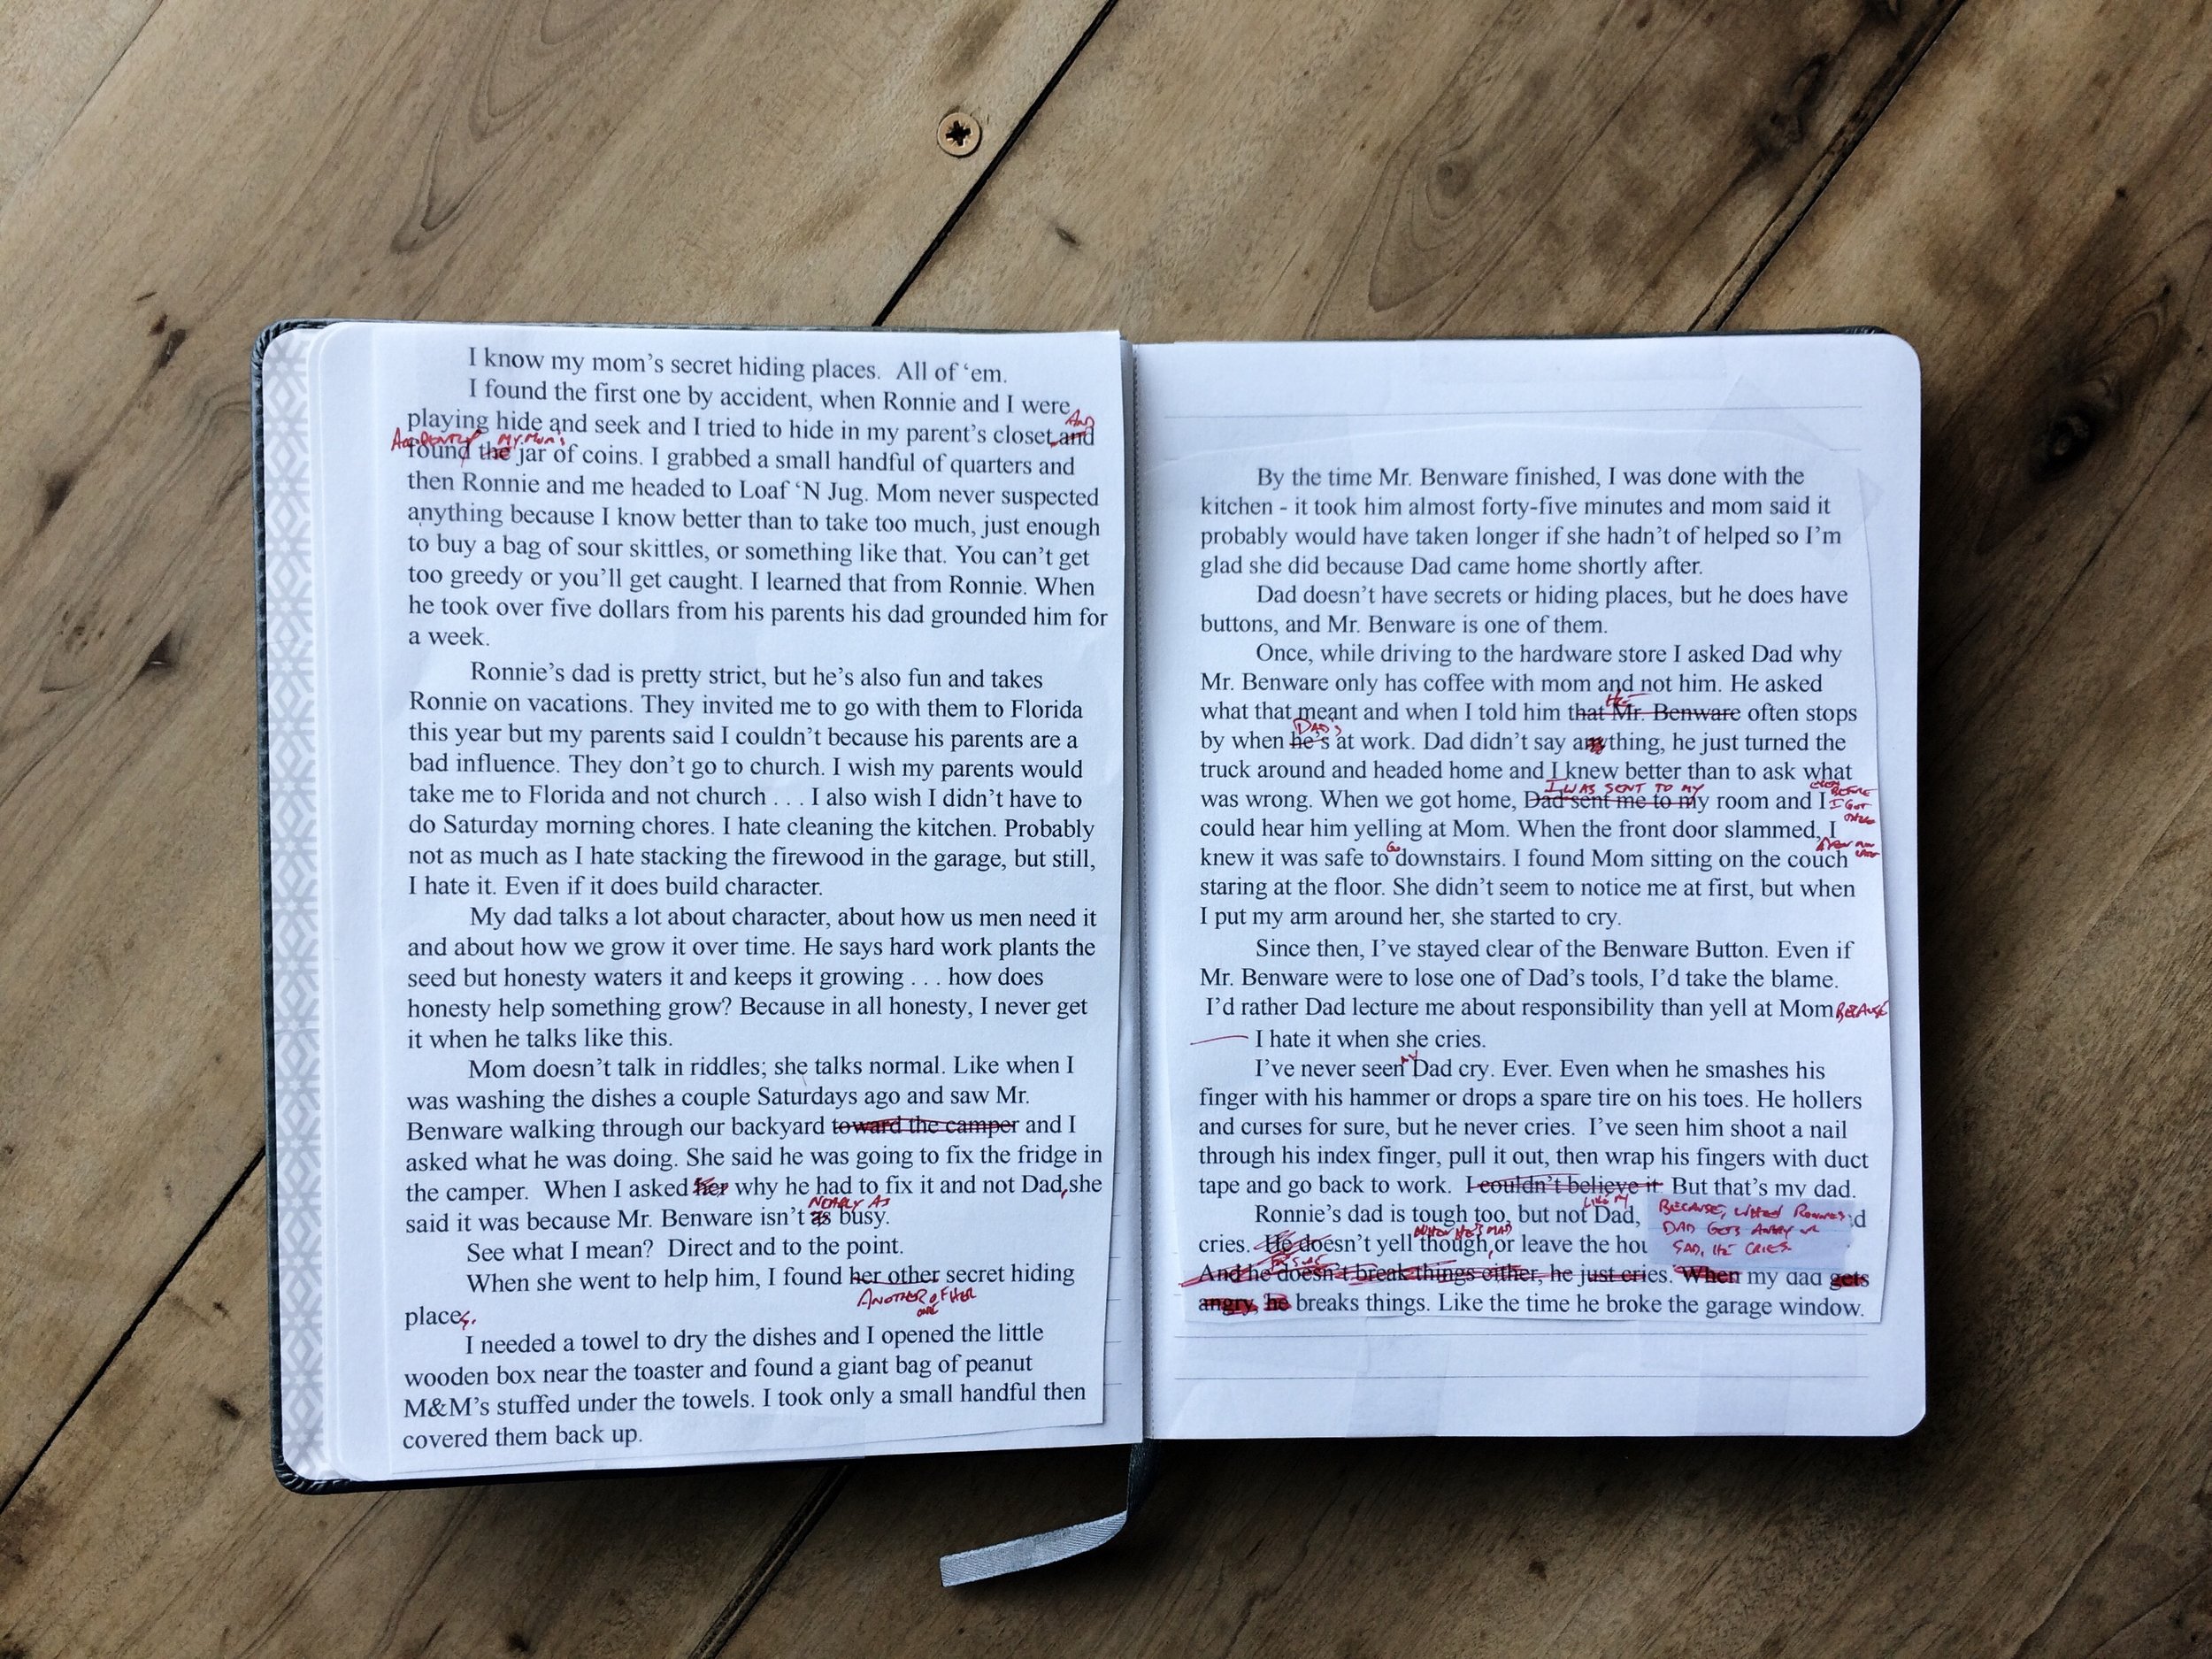 I know my mom’s secret hiding places.  All of ‘em.
I found the first one by accident, when Ronnie and I were
AND
playing hide and seek and I tried to hide in my parent’s closet and
MY MOM'S
found the jar of coins. I grabbed a small handful of quarters and
then Ronnie and me headed to Loaf ‘N Jug. Mom never suspected
anything because I know better than to take too much, just enough
to buy a bag of sour skittles, or something like that. You can’t get
too greedy or you’ll get caught. I learned that from Ronnie. When
he took over five dollars from his parents his dad grounded him for
a week.
Ronnie’s dad is pretty strict, but he’s also fun and takes
Ronnie on vacations. They invited me to go with them to Florida
this year but my parents said I couldn’t because his parents are a
bad influence. They don’t go to church. I wish my parents would
take me to Florida and not church . . . I also wish I didn’t have to
do Saturday morning chores. I hate cleaning the kitchen. Probably
not as much as I hate stacking the firewood in the garage, but still,
I hate it. Even if it does build character.
My dad talks a lot about character, about how us men need it
and about how we grow it over time. He says hard work plants the
seed but honesty waters it and keeps it growing . . . how does
honesty help something grow? Because in all honesty, I never get
it when he talks like this.
Mom doesn’t talk in riddles; she talks normal. Like when I
was washing the dishes a couple Saturdays ago and saw Mr.
Benware walking through our backyard toward the camper and I
asked what he was doing. She said he was going to fix the fridge in
the camper.  When I asked her why he had to fix it and not Dad, she
NEARLY AS
said it was because Mr. Benware isn’t as busy.
See what I mean?  Direct and to the point.
When she went to help him, I found her other secret hiding
ANOTHER OF HER
places.
I needed a towel to dry the dishes and I opened the little
wooden box near the toaster and found a giant bag of peanut
M&M’s stuffed under the towels. I took only a small handful then
covered them back up.
By the time Mr. Benware finished, I was done with the
kitchen - it took him almost forty-five minutes and mom said it
probably would have taken longer if she hadn’t of helped so I’m
glad she did because Dad came home shortly after.
Dad doesn’t have secrets or hiding places, but he does have
buttons, and Mr. Benware is one of them.
Once, while driving to the hardware store I asked Dad why
Mr. Benware only has coffee with mom and not him. He asked
HE
what that meant and when I told him that Mr. Benware often stops
DAD'S
by when he’s at work. Dad didn’t say anything, he just turned the
truck around and headed home and I knew better than to ask what
I WAS SENT TO MY
was wrong. When we got home, Dad sent me to my room and I
EVEN BEFORE
I GOT
could hear him yelling at Mom. When the front door slammed, I
GO
knew it was safe to downstairs. I found Mom sitting on the couch
staring at the floor. She didn’t seem to notice me at first, but when
I put my arm around her, she started to cry.
Since then, I’ve stayed clear of the Benware Button. Even if
Mr. Benware were to lose one of Dad’s tools, I’d take the blame.
I’d rather Dad lecture me about responsibility than yell at Mom BECAUSE
I hate it when she cries.
MY
I’ve never seen Dad cry. Ever. Even when he smashes his
finger with his hammer or drops a spare tire on his toes. He hollers
and curses for sure, but he never cries.  I’ve seen him shoot a nail
through his index finger, pull it out, then wrap his fingers with duct
tape and go back to work.  I couldn’t believe it. But that’s my dad.
LIKE MY
Ronnie’s dad is tough too, but not Dad,
BECAUSE, WHEN RONNIE'S
DAD GETS ANGRY OR
SAD, HE CRIES.
WHEN HE'S MAD
cries. He doesn’t yell though, or leave the
And he doesn’t break things either, he just cries. When my dad gets
angry, he breaks things. Like the time he broke the garage window.